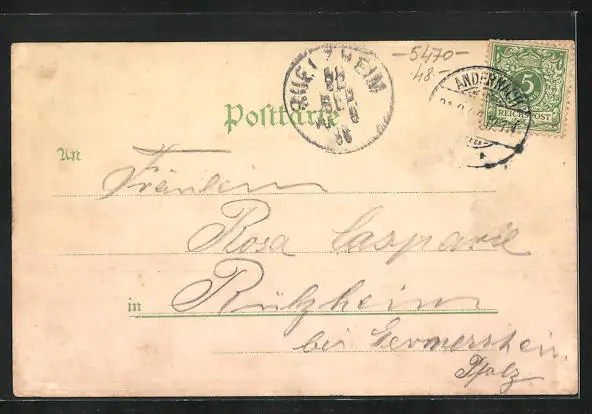 -5470-
48-
5
REICHSPOST
ANDERNACH
Postkarte
An
Fräulein
Rosa Casparie
in Rülzheim
bei Germersheim
Pfalz